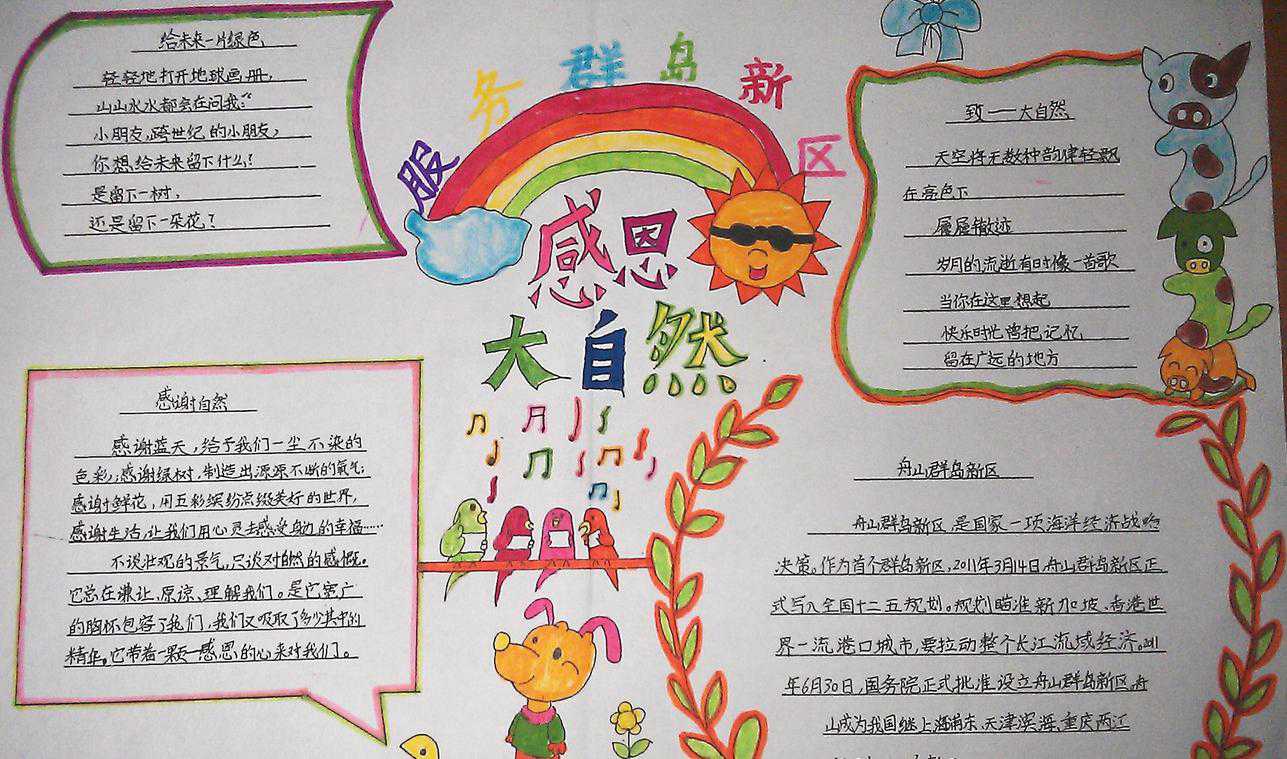 给未来一片绿色
轻轻地打开地球画册,
山山水水都会在问我:“
小朋友,跨世纪的小朋友,
你想给未来留下什么?
是留下一树,
还是留下一朵花?
服务群岛新区
感恩
大自然
致——大自然
天空将无数种韵律轻飘
在亮色下
屡屡辙迹
岁月的流逝有时像一首歌
当你在这里想起
快乐时光曾把记忆
留在广远的地方
感谢自然
感谢蓝天,给予我们一尘不染的
色彩;感谢绿树,制造出源源不断的氧气;
感谢鲜花,用五彩缤纷点缀美好的世界,
感谢生活,让我们用心灵去感受身边的幸福……
不谈壮观的景气,只谈对自然的感慨。
它总在谦让、原谅、理解我们。是它宽广
的胸怀包容了我们,我们又吸取了多少其中的
精华。它带着一颗一感恩的心来对我们。
舟山群岛新区
舟山群岛新区是国家一项海洋经济战略
决策。作为首个群岛新区,2011年3月14日,舟山群岛新区正
式写入全国十二五规划。规划瞄准新加坡、香港世
界一流港口城市,要拉动整个长江流域经济。2011
年6月30日,国务院正式批准设立舟山群岛新区,舟
山成为我国继上海浦东、天津滨海、重庆两江